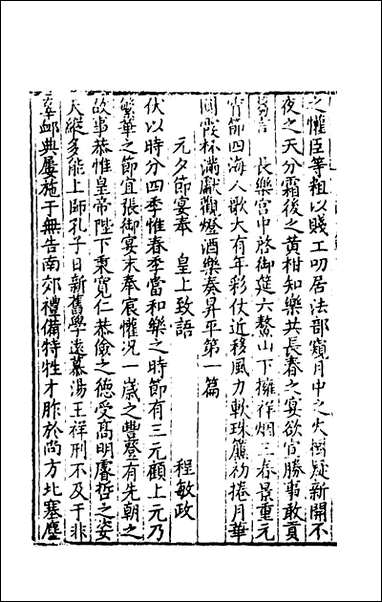 之懽臣等粗以賤工叨居法部窺月中之火樹疑新開不
夜之天分霜後之黄柑知樂共長春之宴欲宣勝事敢貢
蕘言　長樂宮中啓御筵六鰲山下擁祥烟三春景重元
宵節四海人歌大有年彩仗近移風力軟珠簾初捲月華
圓霞杯滿獻觀燈酒樂奏昇平第一篇
元夕節宴奉　皇上致語　程敏政
伏以時分四季惟春季當和樂之時節有三元顧上元乃
繁華之節宜張御宴末奉宸懽况一歲之豐登有先朝之
故事恭惟皇帝陛下秉寬仁恭儉之德受髙明睿哲之姿
天縱多能上師孔子日新舊學遠慕湯王祥刑不及于非
辜䘏典屢施于無告南郊禮備特牲才胙於尚方北塞塵